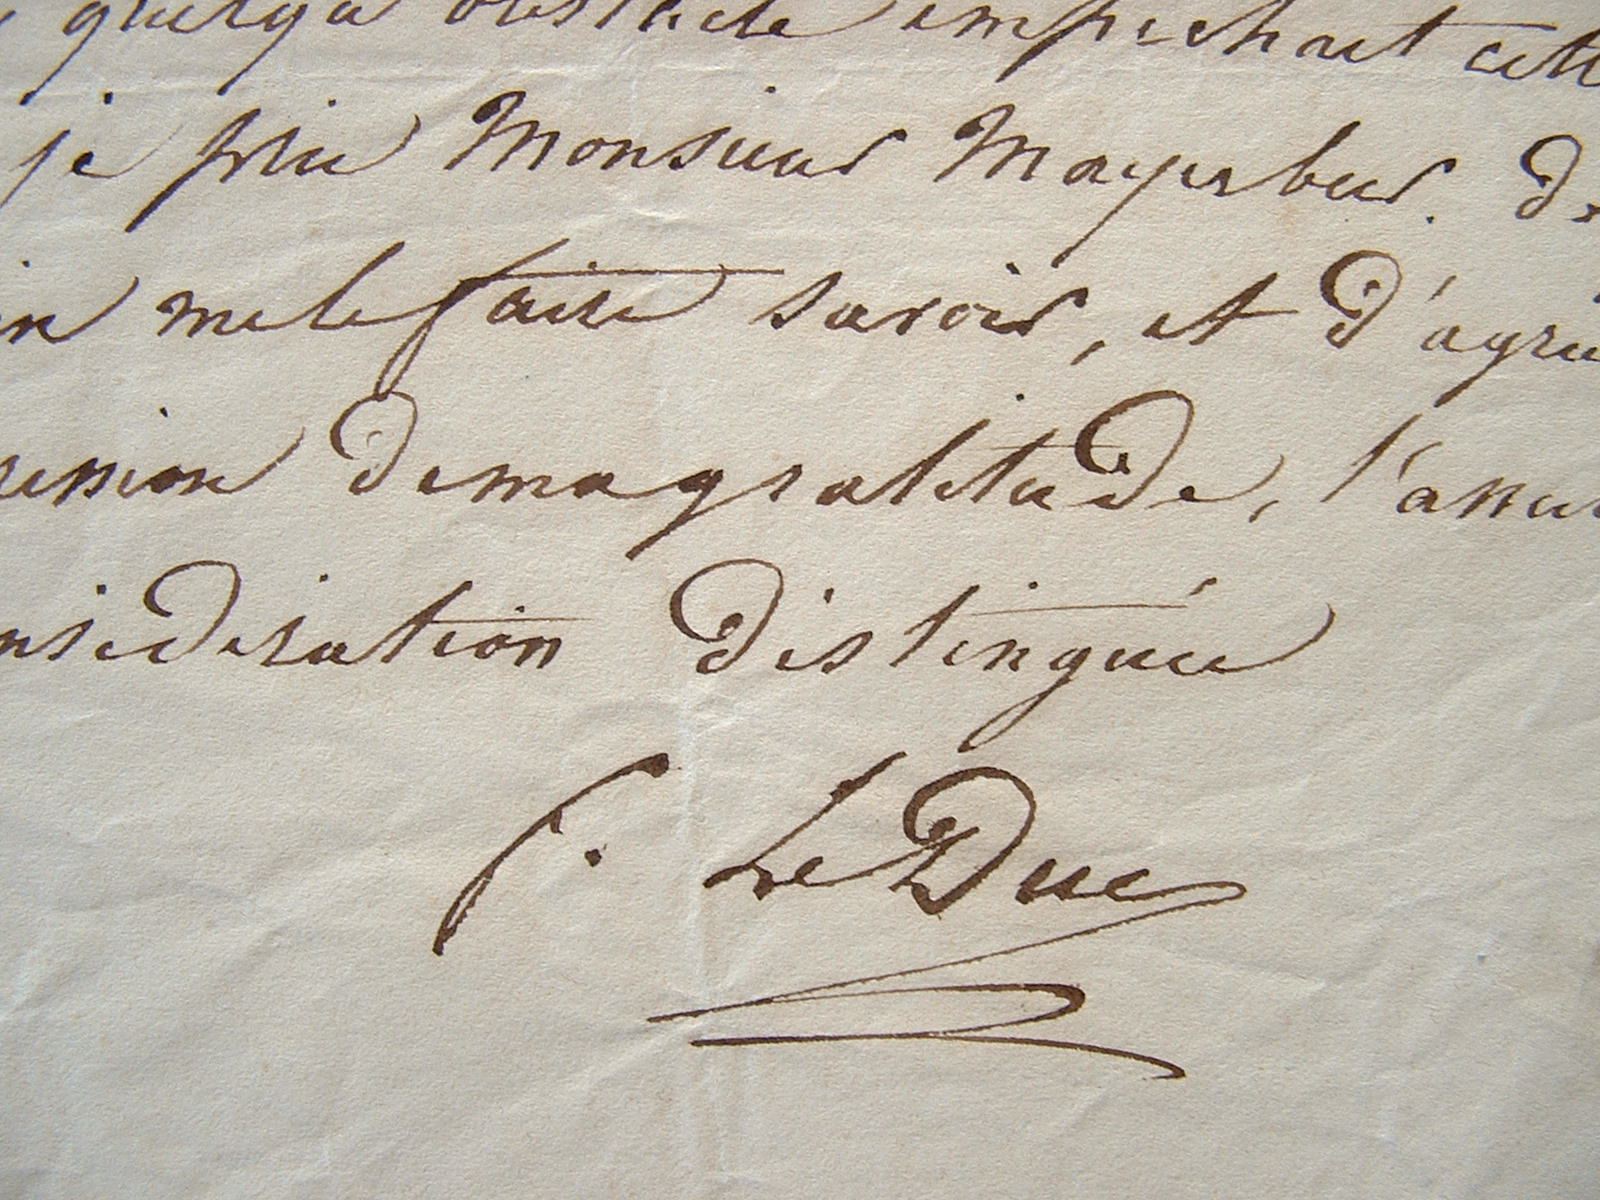 quelqu'obstacle empechait cette
je prie Monsieur Mayerber. de
me le faire savoir, et d'agréer
de ma gratitude, l'assur
nsideration distinguée
f. Le Duc